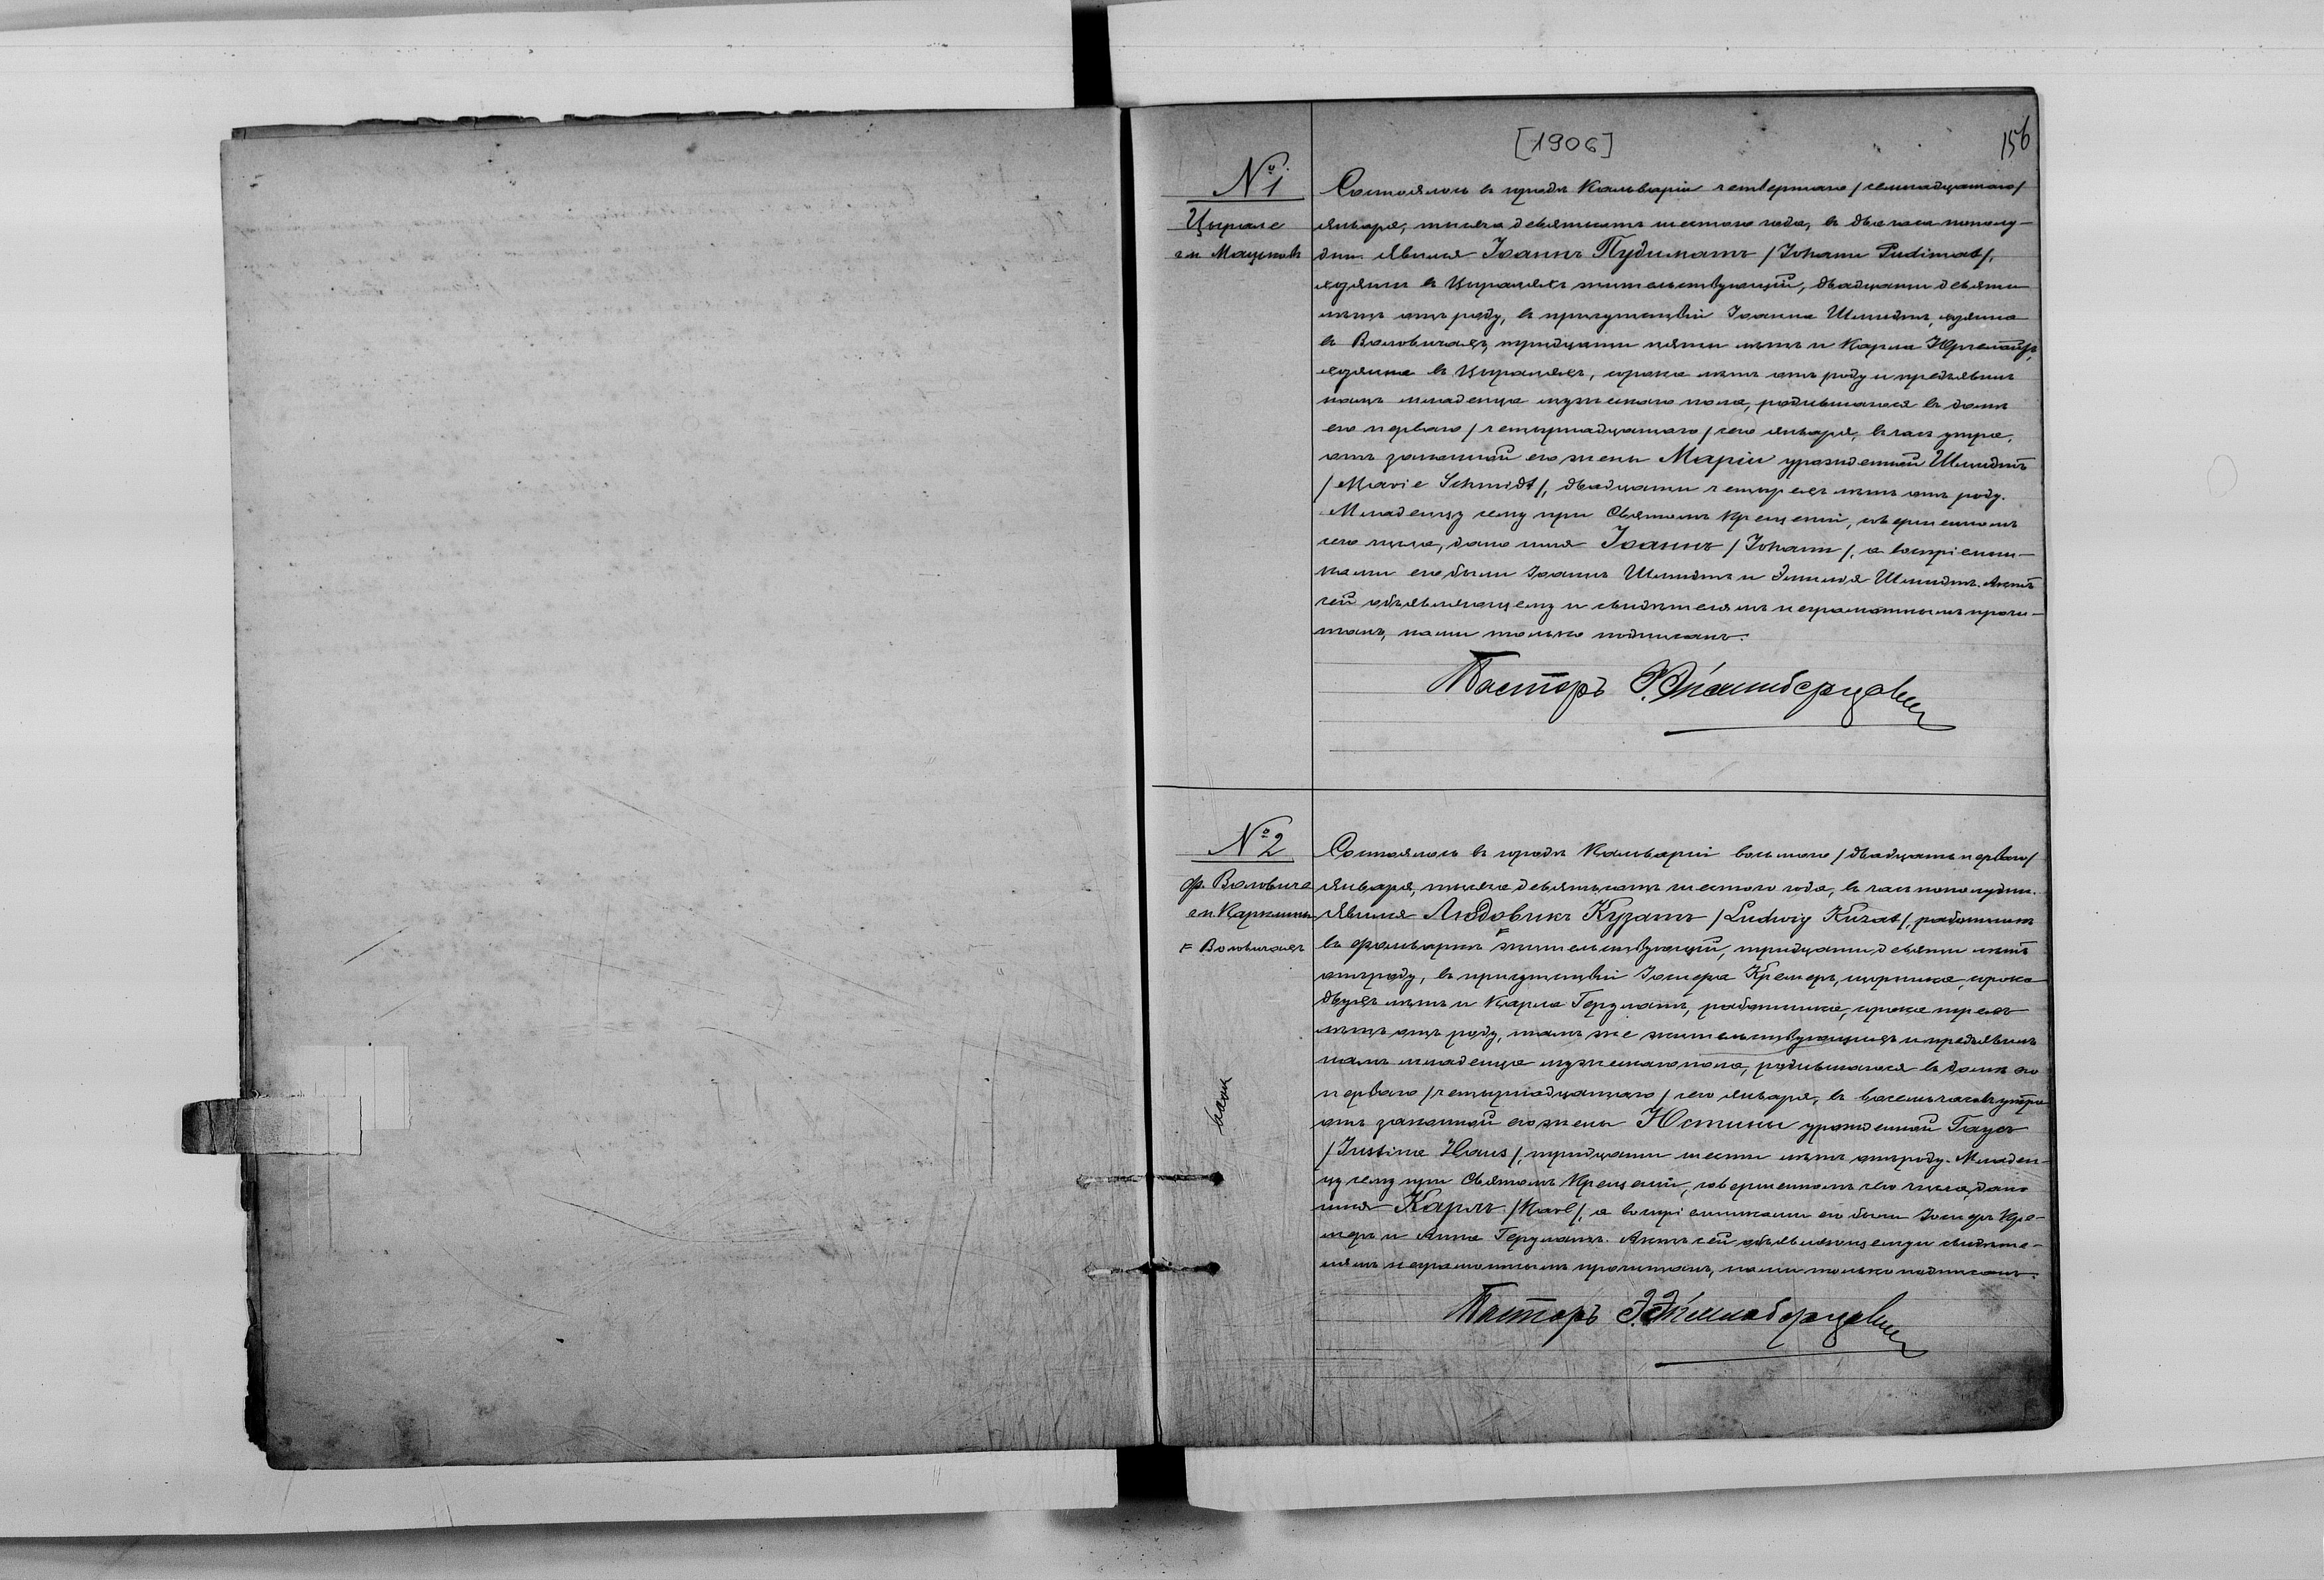 [1906]
156
№ 1
Цырале
гм. Мацьковъ
Состоялось въ городѣ Кальваріи четвертаго /семнадцатаго/
января, тысяча девятьсотъ шестого года, въ два часа пополу-
дни. Явился Іоаннъ Пудиматъ /Johann Pudimat/,
хозяинъ въ Цыраляхъ жительствующій, двадцати девяти
лѣтъ отъ роду, въ присутствіи Іоанна Шмидтъ, хозяина
въ Воловичахъ, тридцати пяти лѣтъ и Карла
хозяина въ Цыраляхъ, сорока лѣтъ отъ роду и предъявилъ
намъ младенца мужескаго пола, родившагося въ домѣ
его перваго /четырнадцатаго/ сего января, въ часъ утра,
отъ законной его жены Маріи урожденной Шмидтъ
/Marie Schmidt/, двадцати четырехъ лѣтъ отъ роду.
Младенцу сему при Святомъ Крещеніи, совершенномъ
сего числа, дано имя Іоаннъ /Johann/, а воспріемни-
ками его были Іоаннъ Шмидтъ и Эмилія Шмидтъ. Актъ
сей объявляющему и свидѣтелямъ неграмотнымъ прочи-
танъ, нами только подписанъ.
Пасторъ
№ 2
ф. Воловиче
гм. Карклины
F Воловичахъ
Состоялось въ городѣ Кальваріи восьмого /двадцать перваго/
января, тысяча девятьсотъ шестого года, въ часъ пополудни.
Явился Людовикъ Кузатъ /Ludwig Kusat/, работникъ
въ фольваркѣ F жительствующій, тридцати девяти лѣтъ
отъ роду, въ присутствіи Іосифа Кремеръ, сорока
двухъ лѣтъ и Карла Герулатъ, работника, сорока трехъ
лѣтъ отъ роду, тамъ же жительствующихъ и предъявилъ
намъ младенца мужескаго пола, родившагося въ домѣ его
перваго /четырнадцатаго/ сего января, въ восемь часовъ утра
отъ законной его жены Юстины урожденной Гаусъ
/Justine Haus/, тридцати шести лѣтъ отъ роду. Младен-
цу сему при Святомъ Крещеніи, совершенномъ сего числа, дано
имя Карлъ /Karl/, а воспріемниками его были Іосифъ Кре-
меръ и Анна Герулатъ. Актъ сей объявляющему и свидѣте-
лямъ неграмотнымъ прочитанъ, нами только подписанъ.
Пасторъ